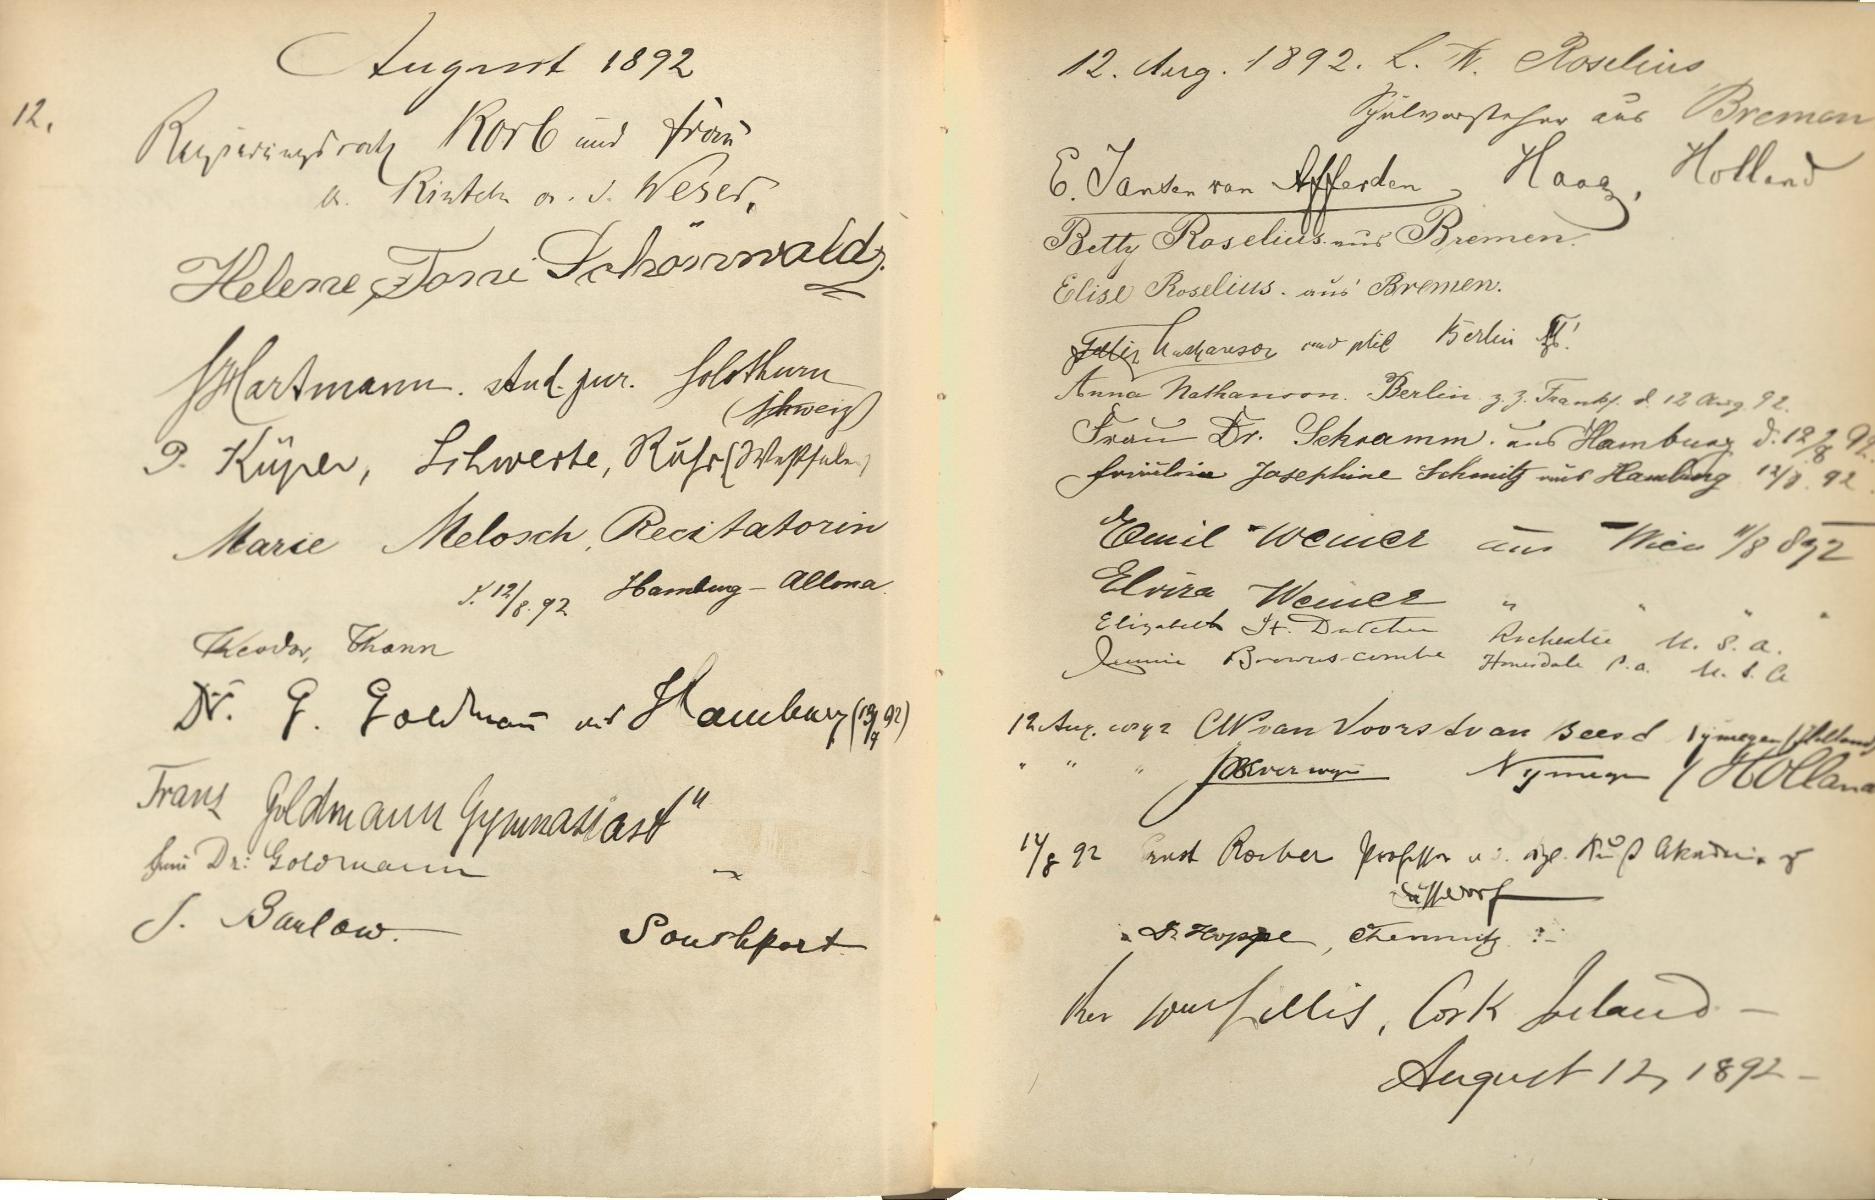 August 1892
12.
Regierungsrath Korb und Frau
a. Rinteln a. d. Weser.
Helene, Toni Schönwald.
Hartmann. stud. jur. Solothurn
(Schweiz)
P. Küper, Schwerte, Ruhr (Westfalen)
Marie Melosch, Recitatorin
d. 12/8. 92 Hamburg - Altona
Theodor Thomn
Dr. G. Goldmann aus Hamburg
Franz Goldmann Gymnasiast "
Frau Dr: Goldmann "
J. Barlow. Southport
12. Aug. 1892. L. W. Roselius
Schulvorsteher aus Bremen
E. Jansen van Afferden, Haag, Holland
Betty Roselius aus Bremen.
Elise Roselius. aus Bremen.
Felix Nathanson cand phil Berlin
Anna Nathanson. Berlin z. Z. Frankf. d. 12 Aug. 92.
Frau Dr. Schramm. aus Hamburg d. 12/8 92.
Fräulein Josephine Schmitz aus Hamburg 12/8. 92.
Emil Weiner aus Wien 11/8 892
Elvira Weiner " " " "
Elizabeth St. Dutcher Rochester U. S. A.
Jennie Brownscombe Honesdale P.a. U. S. A
12 Aug. 1892 van Voorst van Beesd Nymegen / Holland
" " " Nymegen / Holland
12/8 92 Ernst Roeber Professor a. d. kgl. Kunst Akademie z
Düsseldorf
Dr Hoppe, Chemnitz
Rev Wm Gillis, Cork Ireland -
August 12, 1892 -